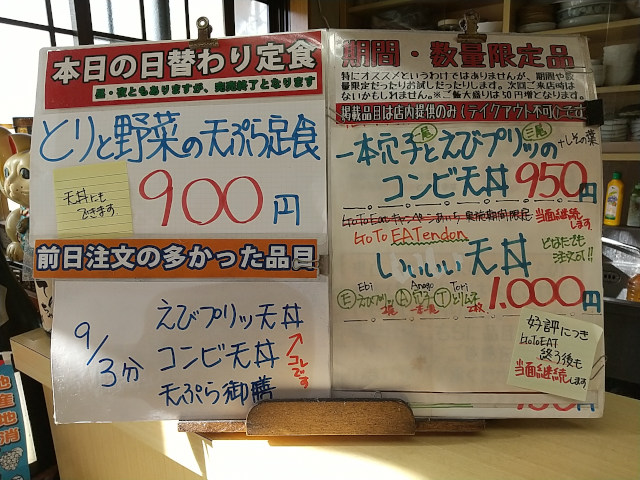 本日の日替わり定食
昼・夜ともありますが、完売終了となります
とりと野菜の天ぷら定食
天丼にも
できます
900円
前日注文の多かった品目
9/3分
えびプリッ天丼
コンビ天丼
天ぷら御膳
コレです
期間・数量限定品
特にオススメというわけではありませんが、期間や数
量限定だったりお試しだったりします。次回ご来店時は
ないかもしれません。※ご飯大盛りは50円増となります。
掲載品目は店内提供のみ(テイクアウト不可)です
一本穴子とえびプリッの
一尾
三尾
+しその葉
コンビ天丼 950円
当面継続します
GoTo EATendon
いいいい天丼
どなたでも
注文OK!!
Ebi Anago Tori
Ⓔえびプリッ2尾 Ⓐ穴子一本一尾 Ⓣとりムネ2枚
1,000円
好評につき
GoToEAT
終了後も
当面継続します